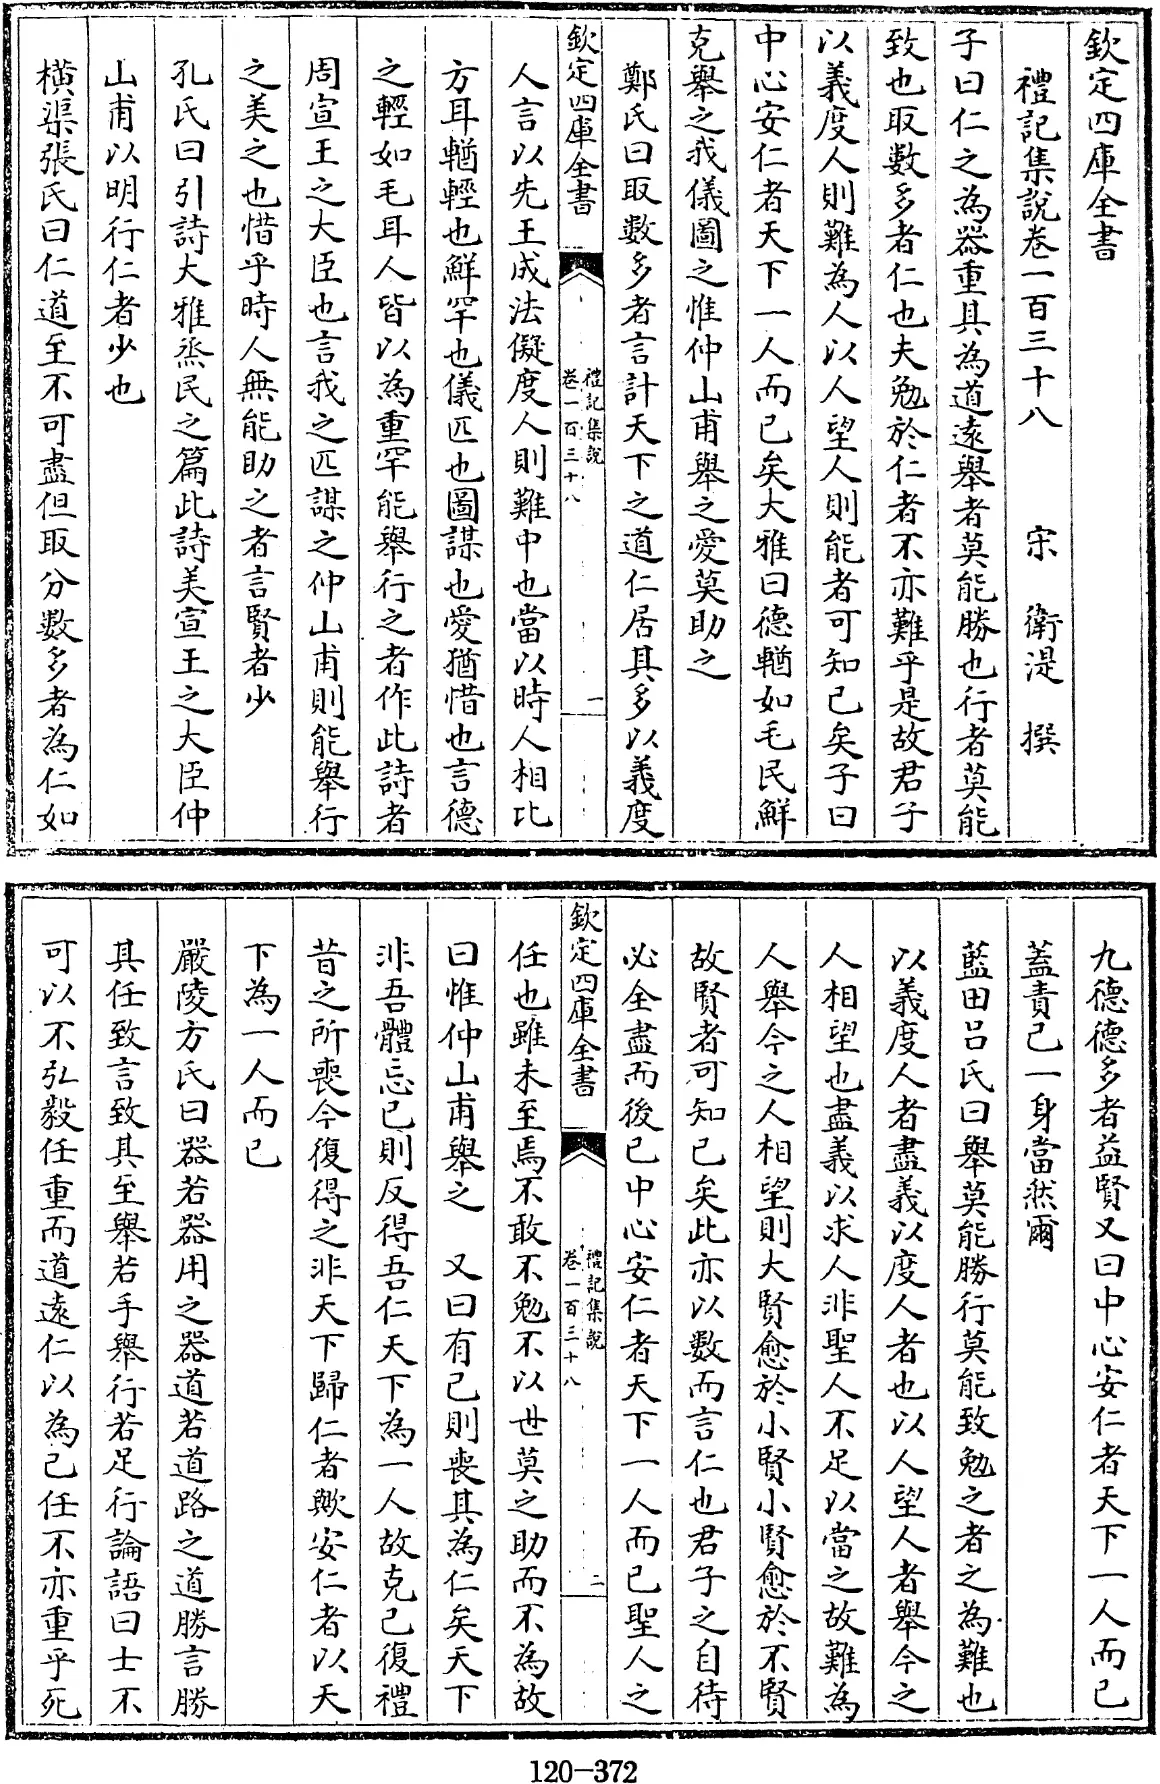 欽定四庫全書
禮記集說卷一百三十八　宋　衛湜　撰
子曰仁之為器重其為道遠舉者莫能勝也行者莫能
致也取數多者仁也夫勉於仁者不亦難乎是故君子
以義度人則難為人以人望人則能者可知已矣子曰
中心安仁者天下一人而已矣大雅曰德輶如毛民鮮
克舉之我儀圖之惟仲山甫舉之愛莫助之
鄭氏曰取數多者言計天下之道仁居其多以義度
欽定四庫全書
禮記集說
卷一百三十八
一
人言以先王成法儗度人則難中也當以時人相比
方耳輶輕也鮮罕也儀匹也圖謀也愛猶惜也言德
之輕如毛耳人皆以為重罕能舉行之者作此詩者
周宣王之大臣也言我之匹謀之仲山甫則能舉行
之美之也惜乎時人無能助之者言賢者少
孔氏曰引詩大雅烝民之篇此詩美宣王之大臣仲
山甫以明行仁者少也
橫渠張氏曰仁道至不可盡但取分數多者為仁如
九德德多者益賢又曰中心安仁者天下一人而已
蓋責己一身當然爾
藍田呂氏曰舉莫能勝行莫能致勉之者之為難也
以義度人者盡義以度人者也以人望人者舉今之
人相望也盡義以求人非聖人不足以當之故難為
人舉今之人相望則大賢愈於小賢小賢愈於不賢
故賢者可知已矣此亦以數而言仁也君子之自待
必全盡而後已中心安仁者天下一人而已聖人之
欽定四庫全書
禮記集說
卷一百三十八
二
任也雖未至焉不敢不勉不以世莫之助而不為故
曰惟仲山甫舉之　又曰有己則喪其為仁矣天下
非吾體忘己則反得吾仁天下為一人故克己復禮
昔之所喪今復得之非天下歸仁者歟安仁者以天
下為一人而已
嚴陵方氏曰器若器用之器道若道路之道勝言勝
其任致言致其至舉若手舉行若足行論語曰士不
可以不弘毅任重而道遠仁以為己任不亦重乎死
120-372